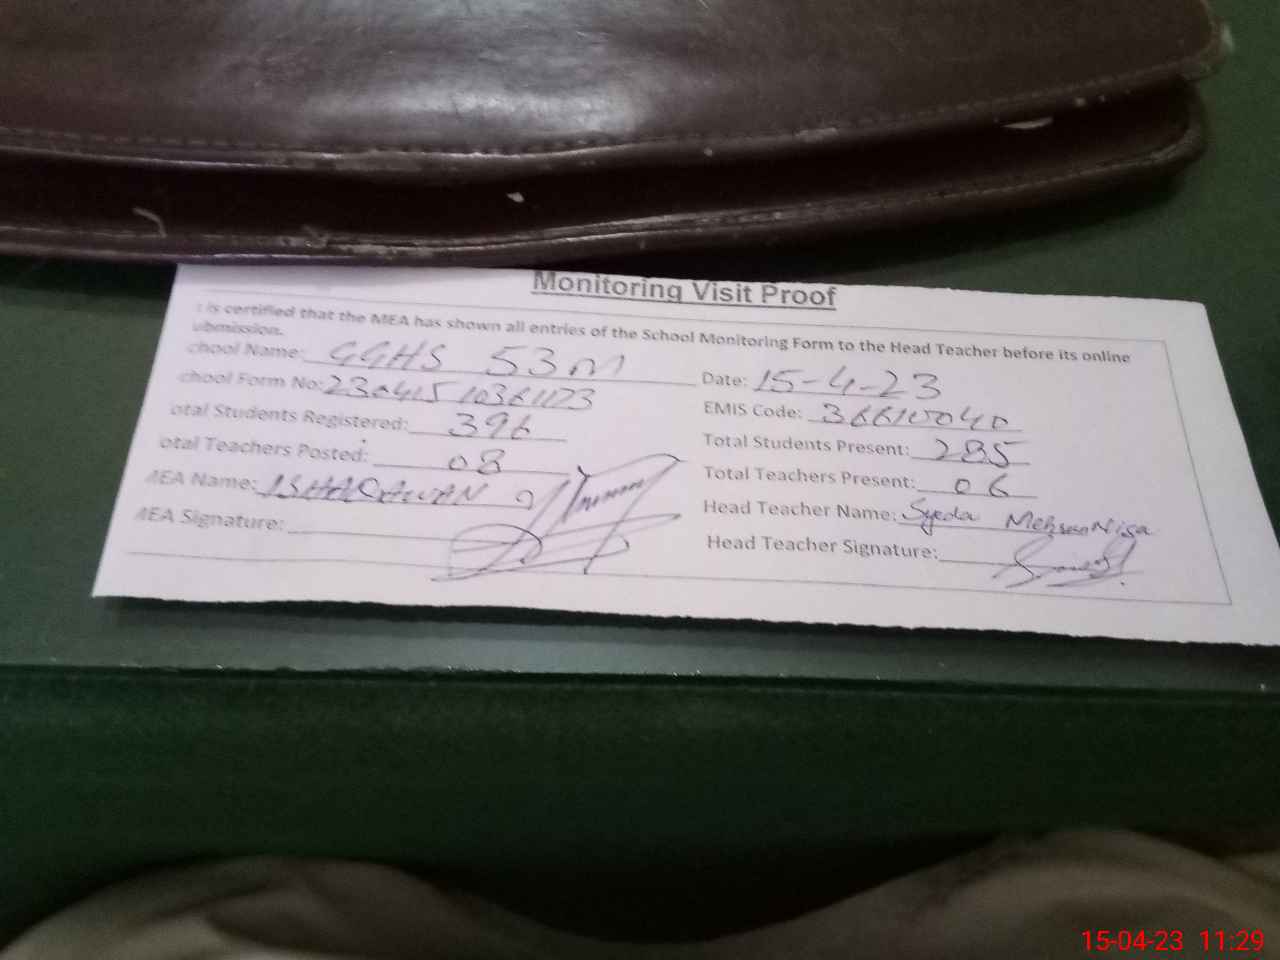 Monitoring Visit Proof
t is certified that the MEA has shown all entries of the School Monitoring Form to the Head Teacher before its online
ubmission.
chool Name: GGHS 53 M
Date: 15-4-23
chool Form No:
EMIS Code: 36610040
otal Students Registered: 396
Total Students Present: 285
otal Teachers Posted: 08
Total Teachers Present: 06
MEA Name: ISHAQ AWAN
Head Teacher Name: Syeda
MEA Signature:
Head Teacher Signature:
15-04-23 11:29